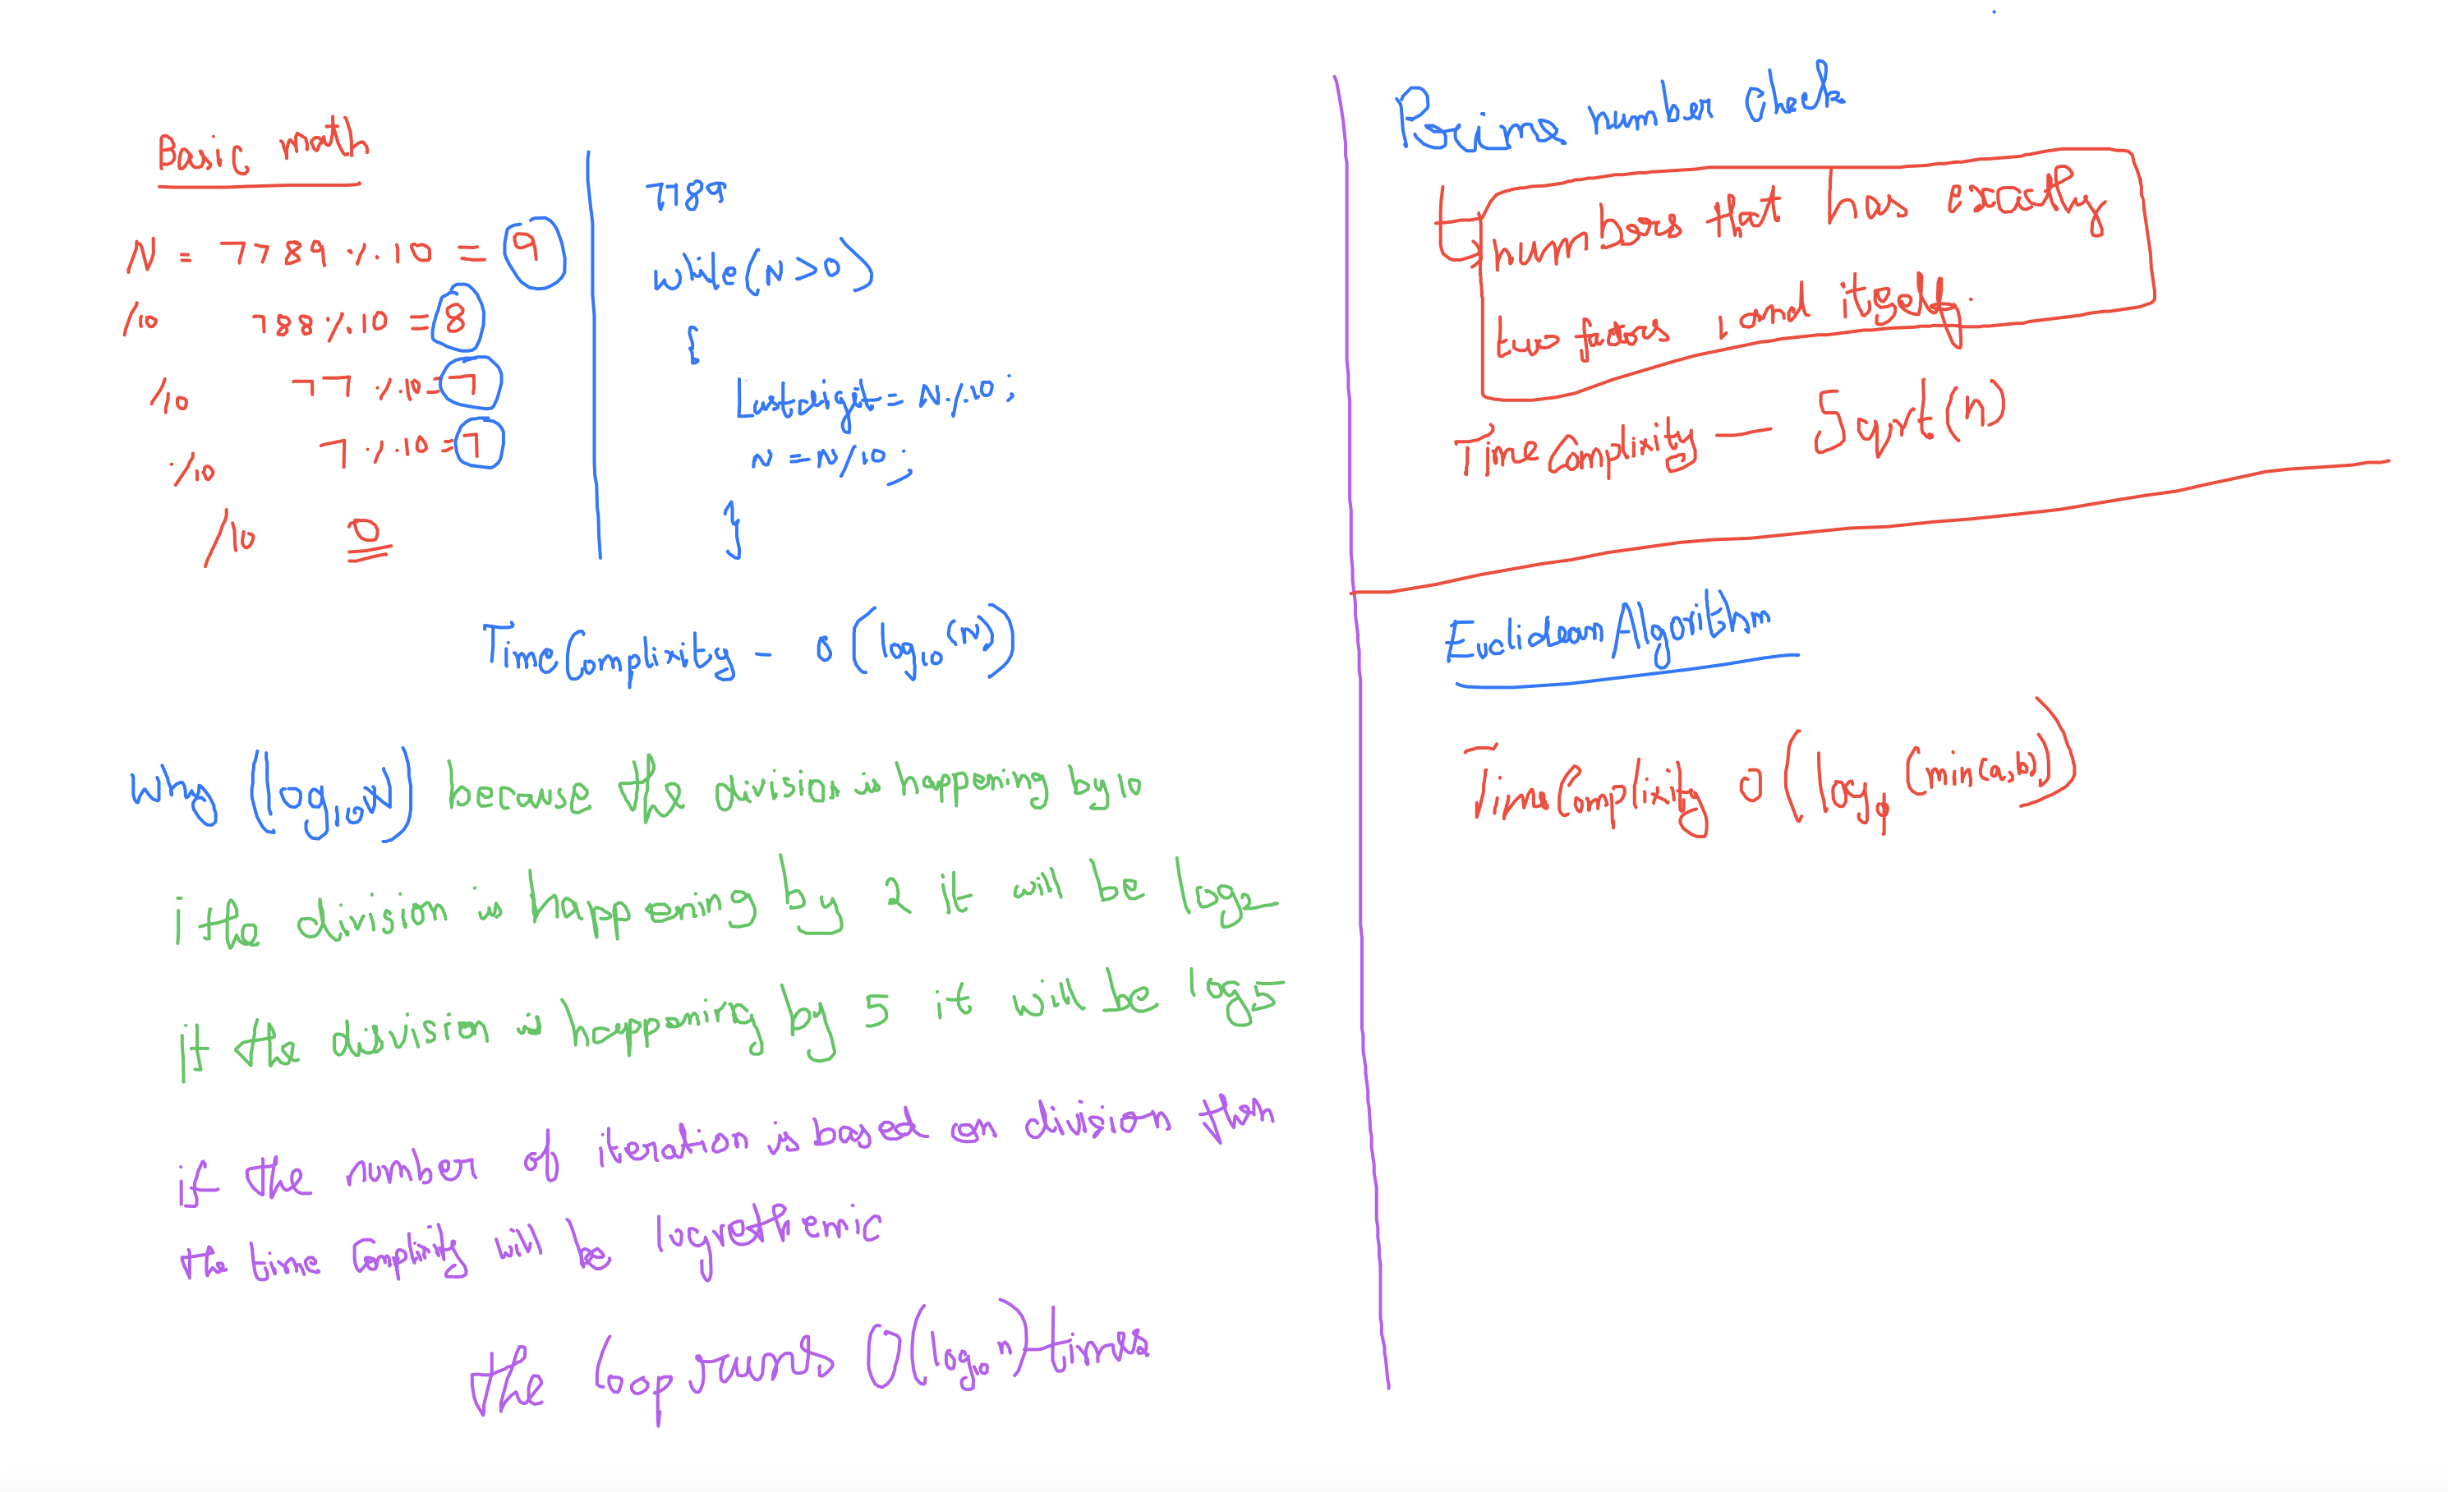 Basic math
N = 7789 % 10 = 9
/10 788 % 10 = 8
/10 77 % 10 = 7
/10 7 % 10 = 7
/10 0
7789
while(N>0)
{
Lastdigit = N%10;
n = N/10;
}
TimeComplixity - O(log10(N))
why (log10N) because the division is happening by 10
if the division is happening by 2 it will be log2
if the division is happening by 5 it will be log5
if the number of iteration is based on division then
the time Complixity will be logathemic
the loop runs O(log10n) times
Prime number check
numbers that has exactly
two factors 1 and itself.
Time Complixity - Sqrt(n)
EuclideanAlgorithm
TimeComplixity O(logφ(min(a,b)))